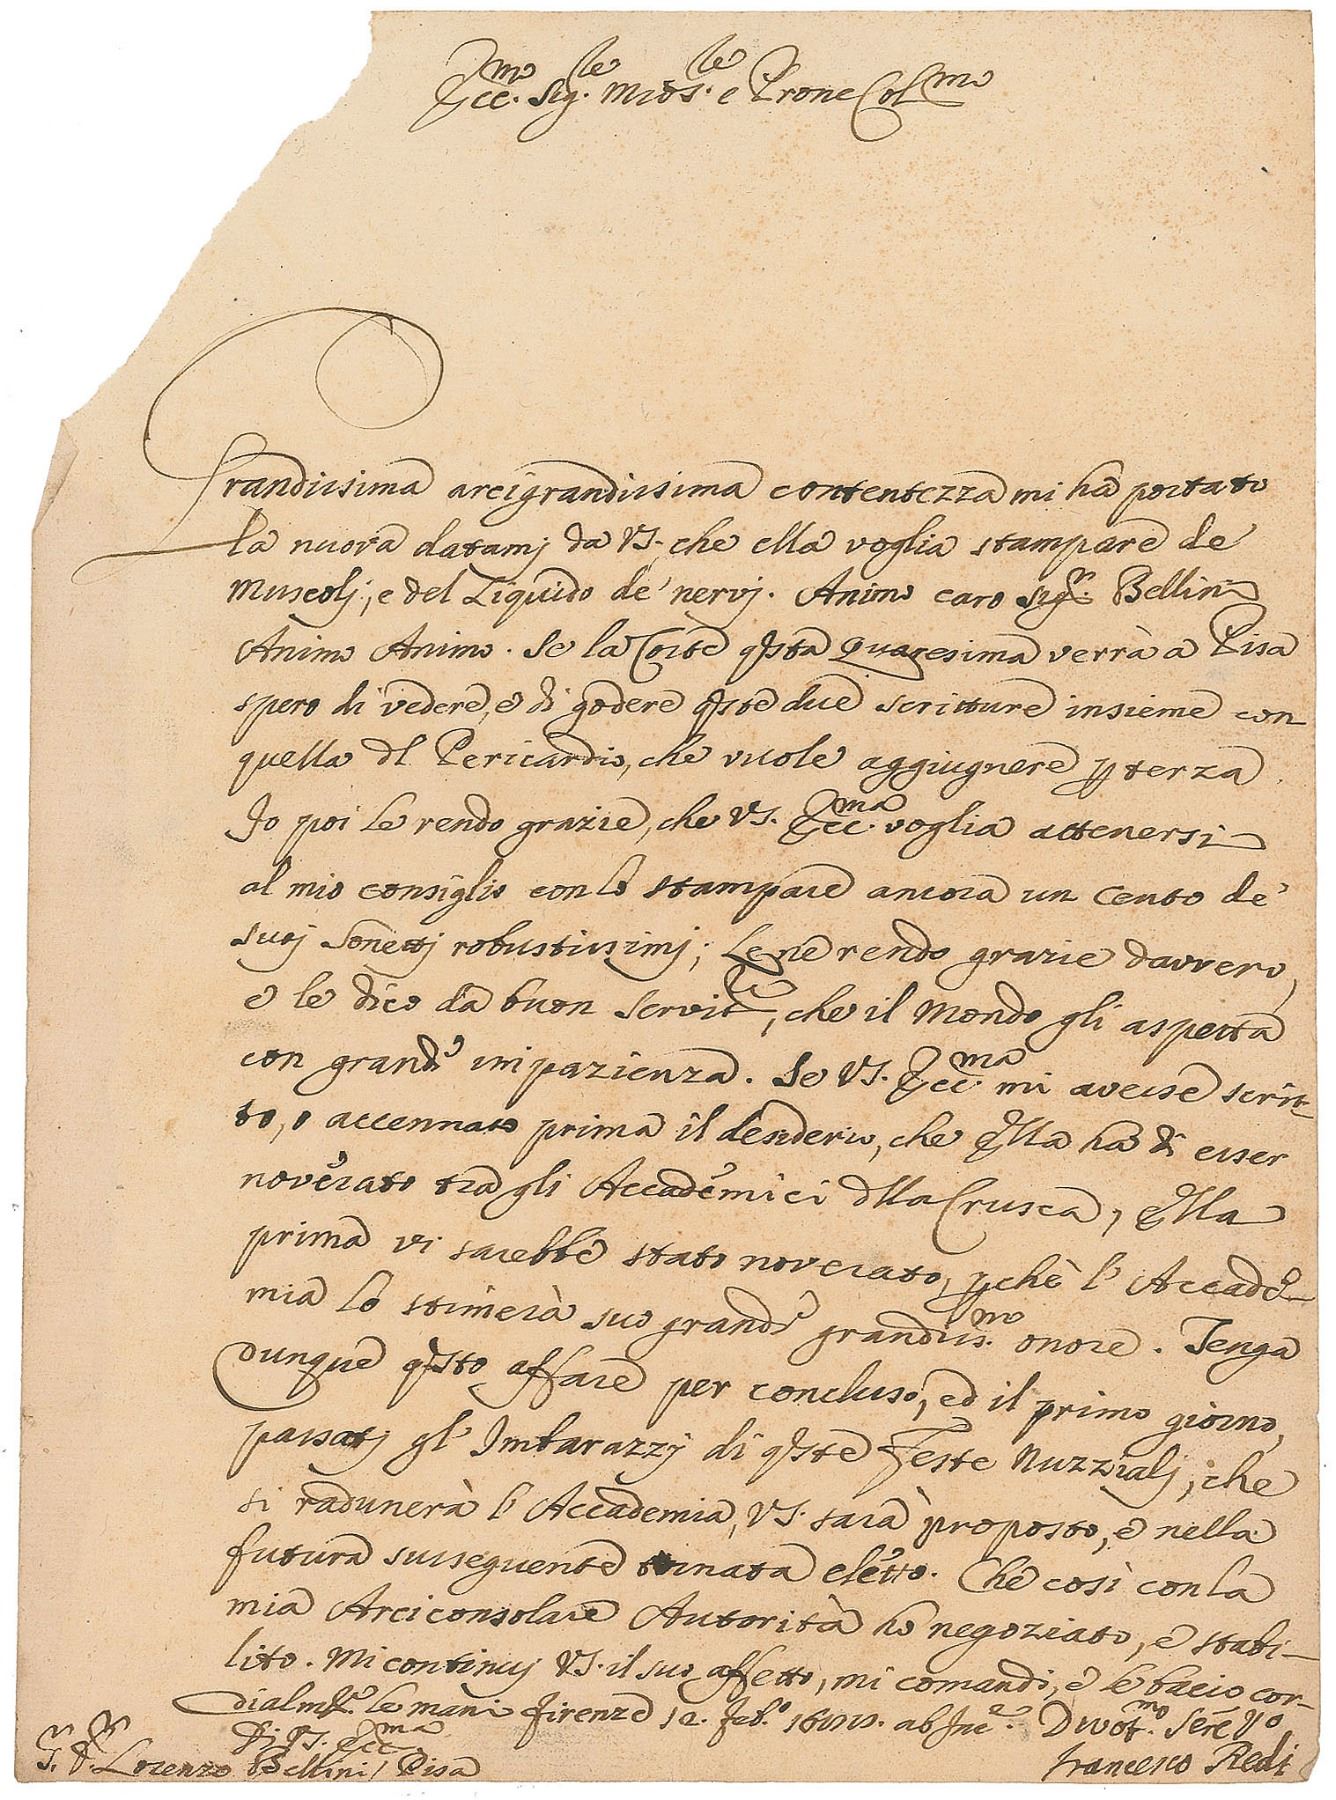 Ecc.mo Sig.re mio Sig.re e Prone Col.mo
Grandissima arcigrandissima contentezza mi ha portato
la nuova datami da VS. che ella voglia stampare de
Muscolj, e del Liquido de' nervj. Animo caro Sig.r Bellini
Animo Animo. Se la Corte qsta Quaresima verrà a Pisa
spero di vedere, e di godere qste due scritture insieme con
quella dl Pericardio, che vuole aggiugnere p terza.
Io poi le rendo grazie, che VS. Ecc.ma voglia attenersi
al mio consiglio con lo stampare ancora un cento de'
suoj sonettj robustissimj; Le ne rendo grazie davvero,
e le dico da buon servit.re, che il mondo gli aspetta
con grand.e impazienza. Se VS. Ecc.ma mi avesse scrit-
to, o accennato prima il desiderio, che Ella ha di esser
noverato tra gli Accademici dlla Crusca, Ella
prima vi sarebbe stato noverato, pchè l' Accade-
mia lo stimerà suo grand.e grandiss.mo onore. Tenga
dunque qsto affare per concluso, ed il primo giorno,
passatj gl' Imbarazzj di qste Feste Nuzzialj, che
si radunerà l' Accademia, VS. sarà proposto, e nella
futura susseguente tornata eletto. Che così con la
mia Arciconsolare Autorità ho negoziato, e stabi-
lito. Mi continuj VS. il suo affetto, mi comandi, e le bacio cor-
dialm.te le mani Firenze 12. Feb.o ab Inc.e
Di VS. Ecc.ma Divot.mo Serre Vo
Lorenzo Bellini, Pisa Francesco Redi